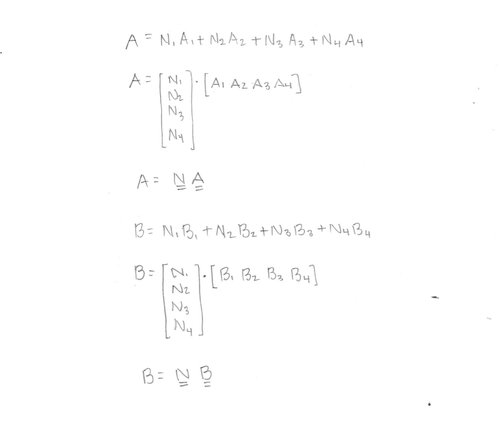 A = N₁A₁ + N₂A₂ + N₃A₃ + N₄A₄
A = [N₁ N₂ N₃ N₄] · [A₁ A₂ A₃ A₄]
A = N A
B = N₁B₁ + N₂B₂ + N₃B₃ + N₄B₄
B = [N₁ N₂ N₃ N₄] · [B₁ B₂ B₃ B₄]
B = N B